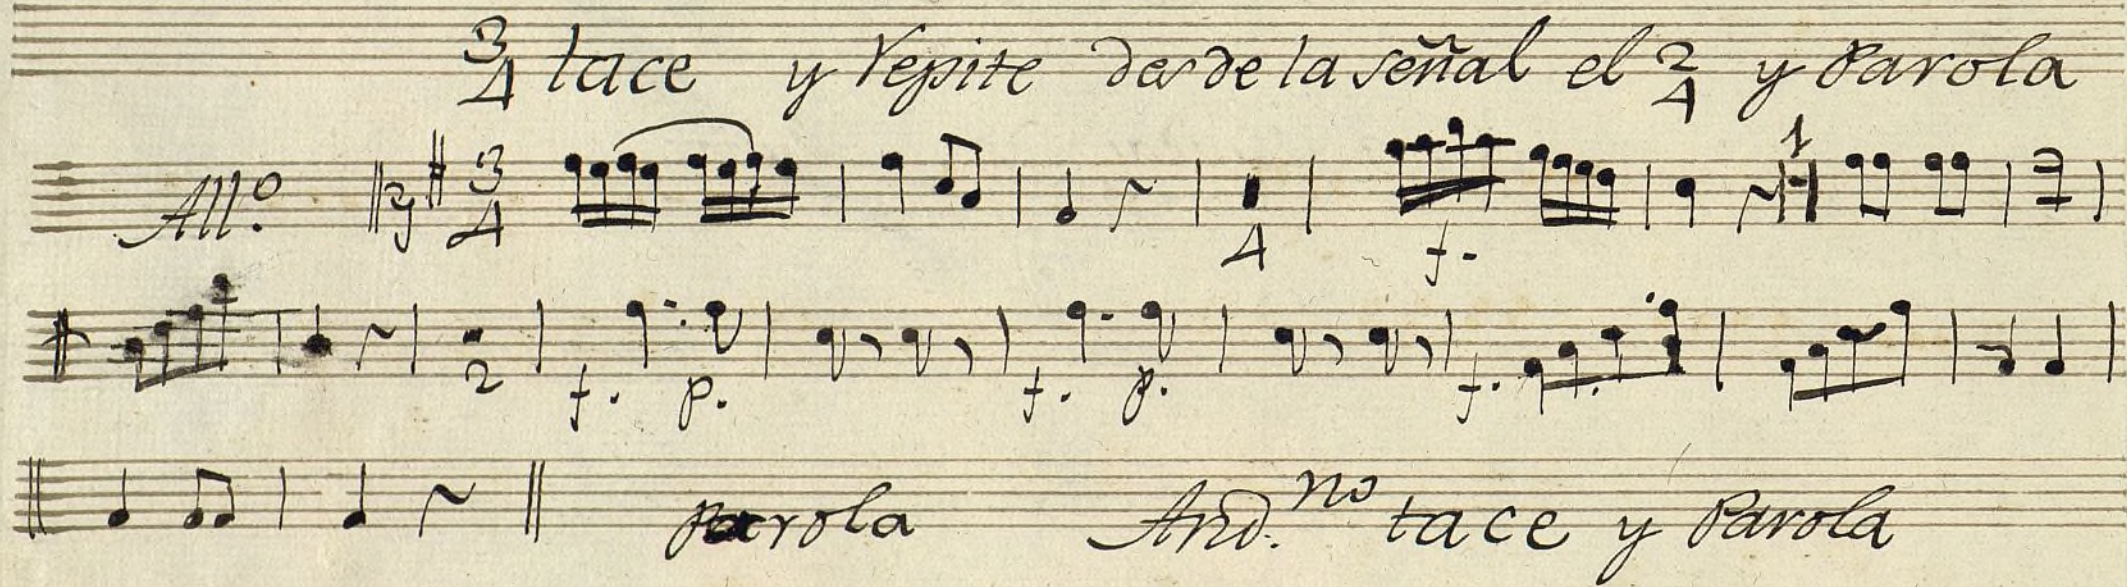 3/4 tace y Repite desde la señal el 2/4 y Parola
All.º 3/4 1
4 f.
2 f. p. f. p. f.
parola And.no tace y Parola